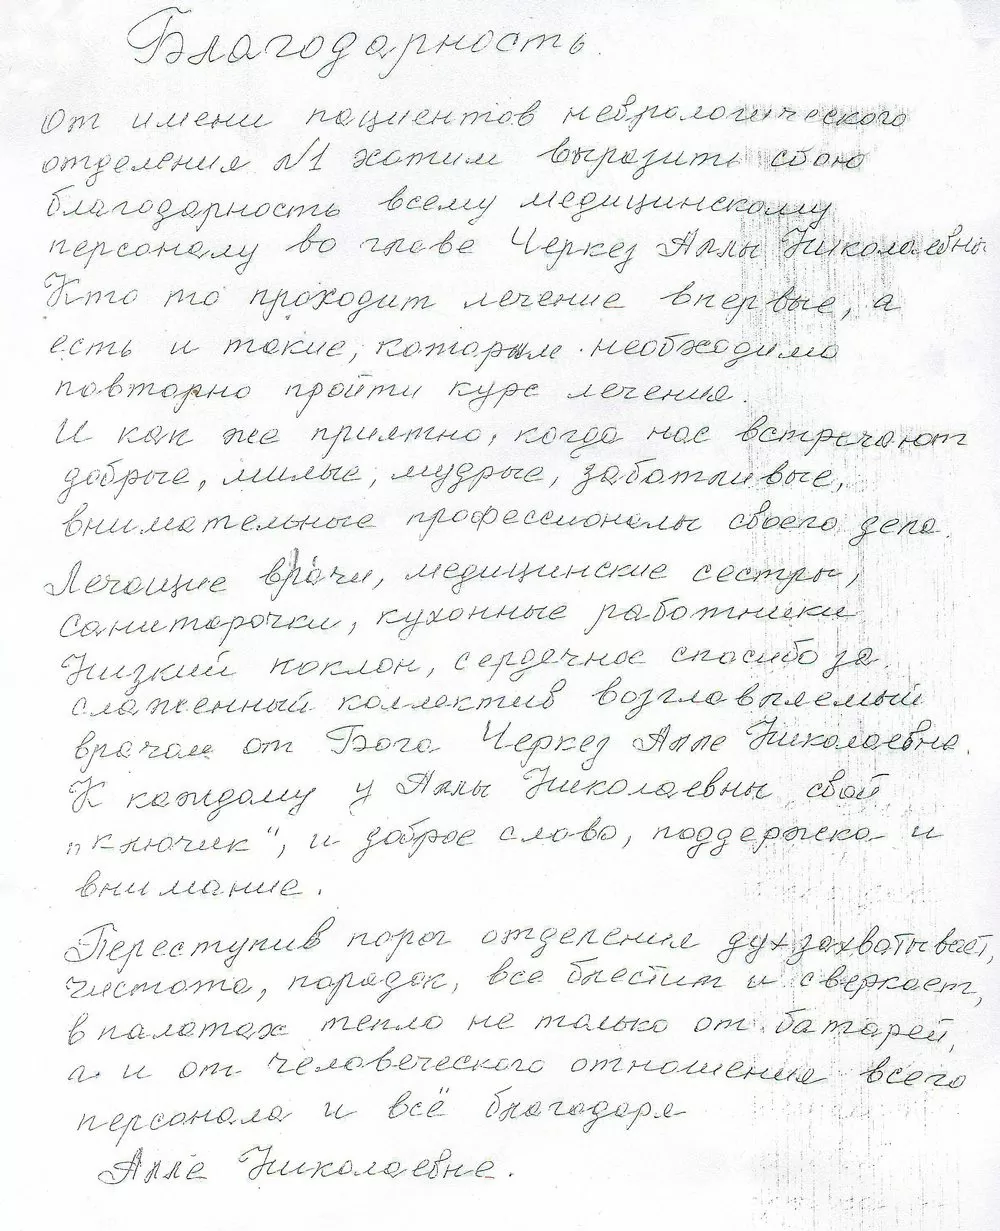 Благодарность.
От имени пациентов неврологического
отделения №1 хотим выразить свою
благодарность всему медицинскому
персоналу во главе Черкез Аллы Николаевны
Кто то проходит лечение впервые, а
есть и такие, которым необходимо
повторно пройти курс лечения.
И как же приятно, когда нас встречают
добрые, милые, мудрые, заботливые,
внимательные профессионалы своего дела.
Лечащие врачи, медицинские сестры,
санитарочки, кухонные работники
Низкий поклон, сердечное спасибо за
слаженный коллектив возглавляемый
врачом от Бога Черкез Алле Николаевне.
К каждому у Аллы Николаевны свой
"ключик", и доброе слово, поддержка и
внимание.
Переступив порог отделения дух захватывает,
чистота, порядок, все блестит и сверкает,
в палатах тепло не только от батарей,
а и от человеческого отношения всего
персонала и всё благодаря
Алле Николаевне.